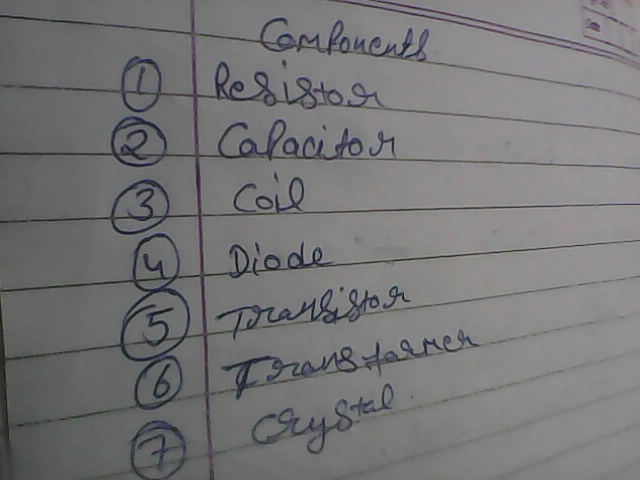 Components
1 Resistor
2 Capacitor
3 Coil
4 Diode
5 Transistor
6 Transformer
7 Crystal